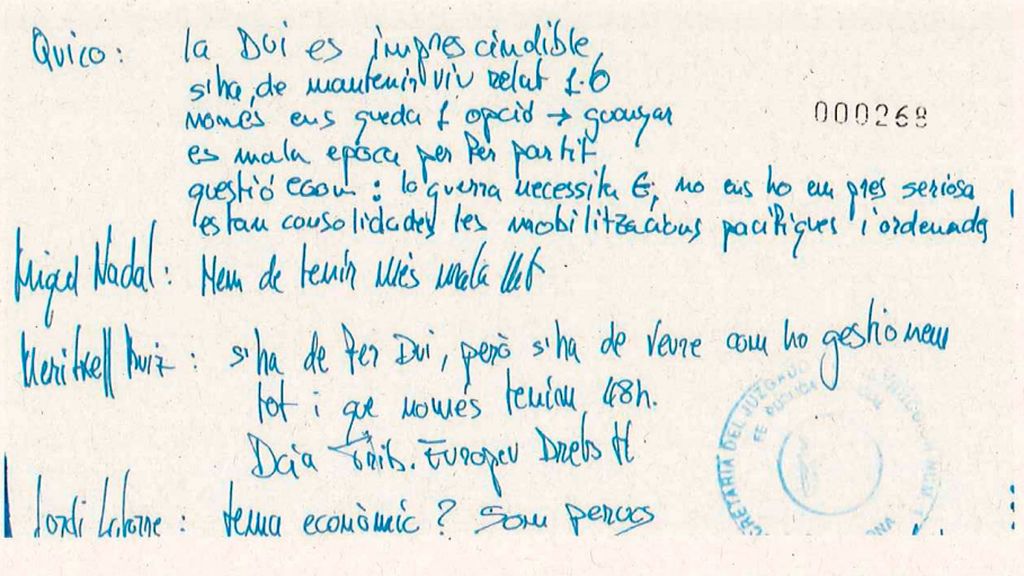 Quico: la DUI es imprescindible,
s'ha de mantenir viu relat 1-O
000268
només ens queda 1 opció → guanyar
es mala època per fer partit
questió econ: la guerra necessita €, no ens ho em pres seriosa
estan consolidades les mobilitzacions pacifiques i ordenades
Miquel Nadal: Hem de tenir més mala llet
Meritxell Ruiz: s'ha de fer DUI, però s'ha de veure com ho gestionem
tot i que només teniem 48h.
Deia Trib. Europeu Drets H
Jordi: tema econòmic? Som penosos
SECRETARIA DEL JUZGADO
FE PÚBLICA